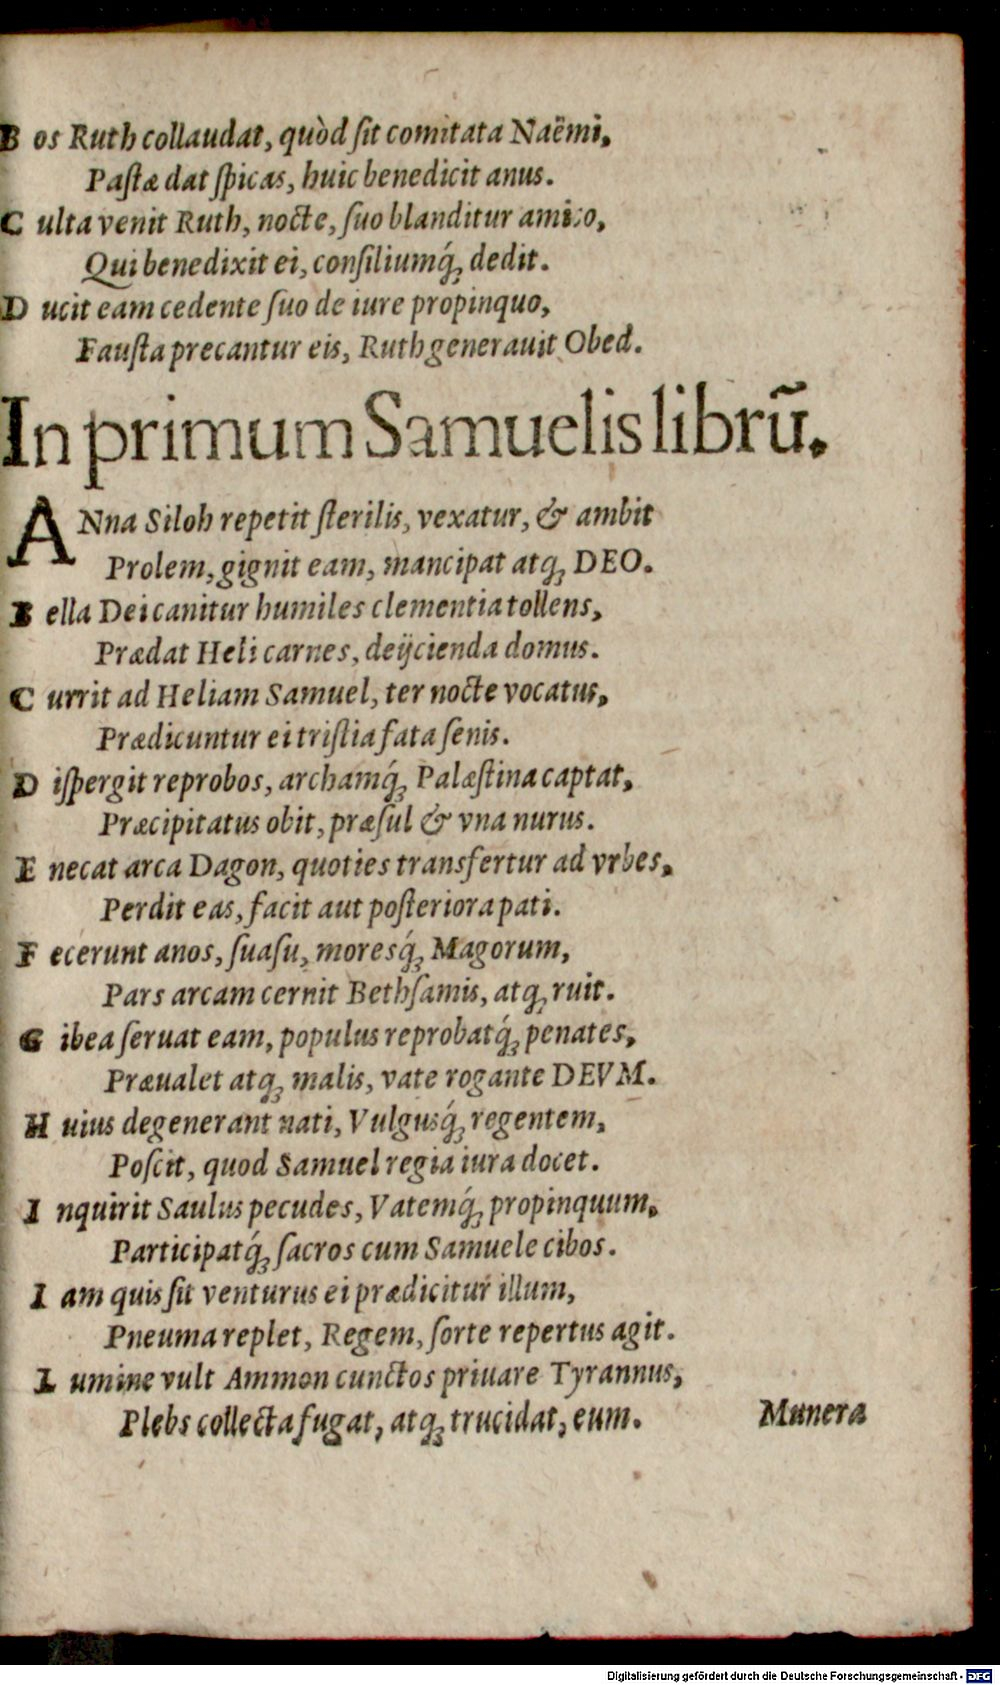 B os Ruth collaudat, quòd ſit comitata Naëmi,
Paſtæ dat ſpicas, huic benedicit anus.
C ulta venit Ruth, nocte, ſuo blanditur amico,
Qui benedixit ei, conſiliumq́ꝫ dedit.
D ucit eam cedente ſuo de iure propinquo,
Fauſta precantur eis, Ruth generauit Obed.
In primum Samuelis librũ.
ANna Siloh repetit ſterilis, vexatur, & ambit
Prolem, gignit eam, mancipat atqꝫ DEO.
B ella Dei canitur humiles clementia tollens,
Prædat Heli carnes, deijcienda domus.
C urrit ad Heliam Samuel, ter nocte vocatus,
Prædicuntur ei triſtia fata ſenis.
D iſpergit reprobos, archamq́ꝫ Palæſtina captat,
Præcipitatus obit, præſul & vna nurus.
E necat arca Dagon, quoties transfertur ad vrbes,
Perdit eas, facit aut poſteriora pati.
F ecerunt anos, ſuaſu, moresq́ꝫ Magorum,
Pars arcam cernit Bethſamis, atqꝫ ruit.
G ibea ſeruat eam, populus reprobatq́ꝫ penates,
Præualet atqꝫ malis, vate rogante DEVM.
H uius degenerant nati, Vulgusq́ꝫ regentem,
Poſcit, quod Samuel regia iura docet.
I nquirit Saulus pecudes, Vatemq́ꝫ propinquum,
Participatq́ꝫ ſacros cum Samuele cibos.
I am quis ſit venturus ei prædicitur illum,
Pneuma replet, Regem, ſorte repertus agit.
L umine vult Ammon cunctos priuare Tyrannus,
Plebs collecta fugat, atqꝫ trucidat, eum.
Munera
Digitalisierung gefördert durch die Deutsche Forschungsgemeinschaft - DFG